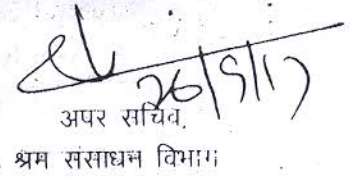 26/5/17
अपर सचिव,
श्रम संसाधन विभाग।